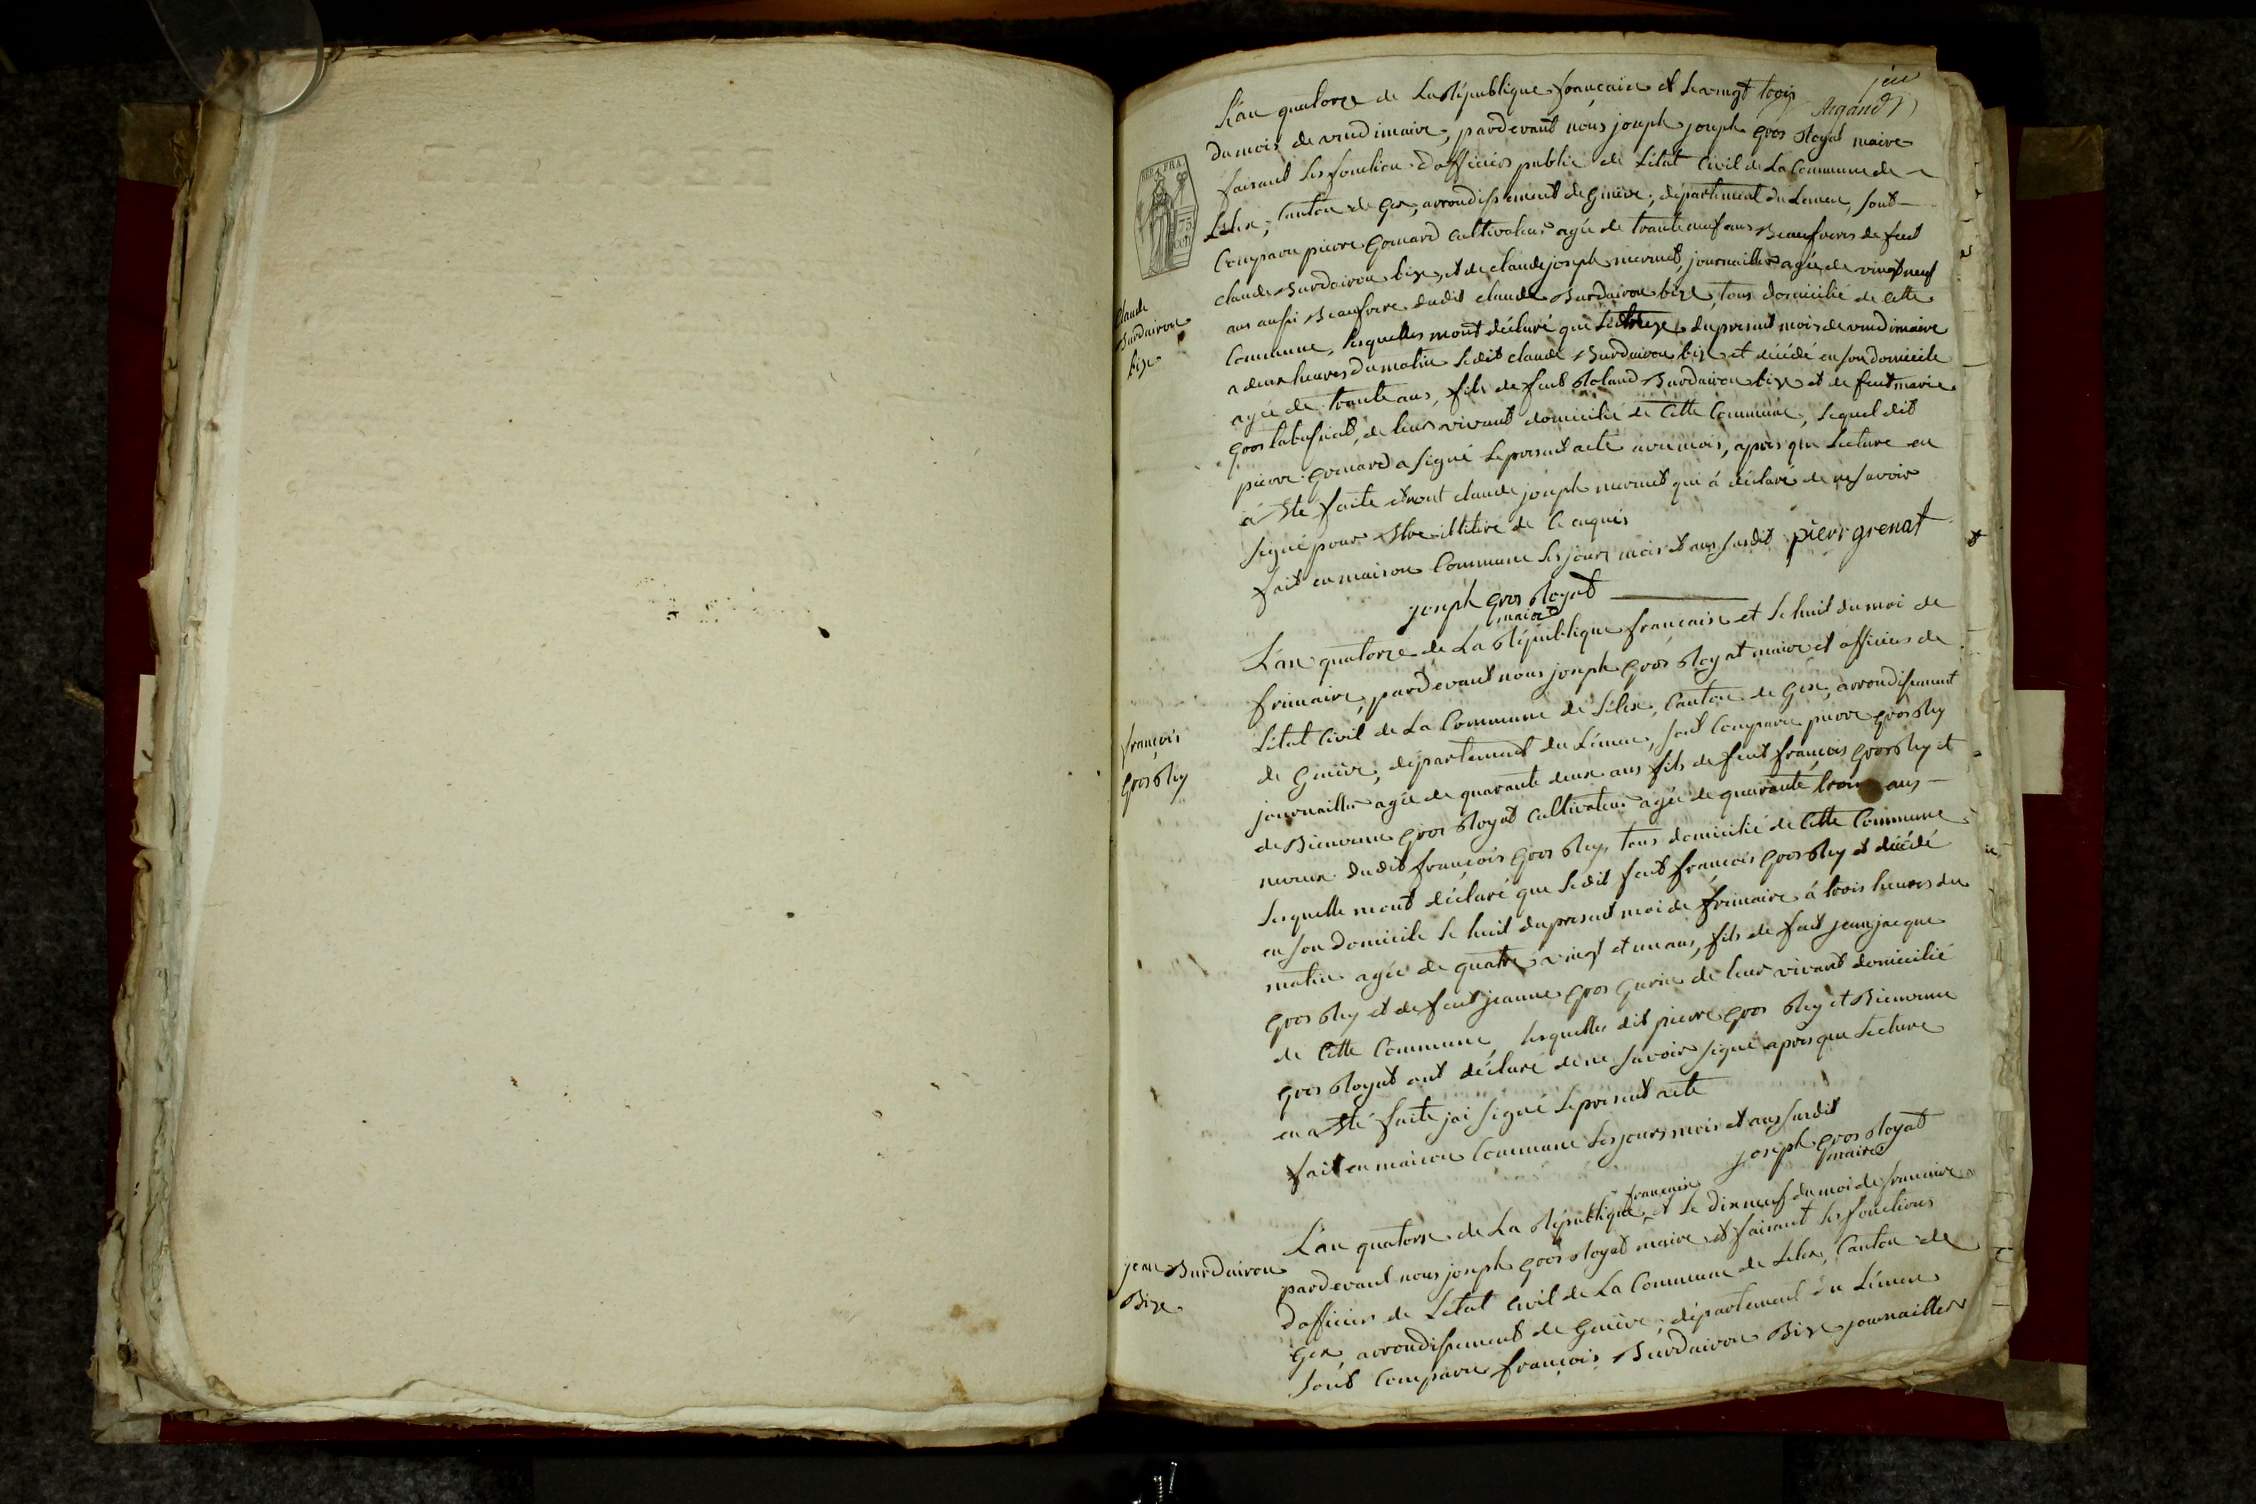 L'an quatorze de La République française et le vingt trois
du mois de vendimaire, pardevant nous joseph joseph gros Royat maire
faisant les fonction d'afficier public de Létat Civil de La Commune de
Lélex, Canton de Gex, arrondissement de Genève, département du Léman, sont
Comparu pierre grenard cultivateur agée de trante neuf ans Beaufreres de feut
claude Burdairon bize, et de claude joseph mermet, journaillier agée de vingt neuf
ans aussi Beaufrere dudit claude Burdairon bize, tous domicilié de cette
Commune, lesquelles mont déclaré que le treize du present mois de vendimaire
a deux heures du matin ledit claude Burdairon bize et décédé en son domicile
agée de trante ans, fils de feut Roland Burdairon bize et de feut marie
gros tabussiat, de leurs vivant domicilié de Cette Commune, lequel dit
pierre grenard a signé le present acte avec mois, apres que lecture en
à Eté faite et nont claude joseph mermet qui à déclaré de ne savoir
signé pour Etre illitiré de ce enquis
fait en maison Commune les jours mois et ans susdit pierr grenat
joseph gros Royat
maire
vu
Argand
REP. FRA.
75
CCT
Claude
Burdairon
bize
L'an quatorze de La République française et le huit du moi de
frimaire, pardevant nous joseph gros Royat maire et afficier de
Létat Civil de La Commune de Lélex, Canton de Gex, arrondissement
de Genève, département du Léman, sont Comparu pierre gros Rey
journaillier agée de quarante deux ans fils de feut françois gros Rey et
de Bienvenu gros Royat cultivateur agée de quarante trois ans
neveux dudit françois gros Rey, tous domicilié de Cette Commune
lesquelle mont déclaré que ledit feut françois gros Rey et décédé
en son domicile le huit du present moi de frimaire à trois heures du
matin agée de quatre vingt et un ans, fils de feut jean jacque
gros Rey et de feut jeanne gros gurin de leur vivant domicilié
de Cette Commune, lesquelles dit pierre gros Rey et Bienvenu
gros Royat ont déclaré de ne savoir signé apres que lecture
en a Eté faite jai signé le present acte
fait en maison Commune les jours mois et ans susdit
joseph gros Royat
maire
françois
gros Rey
L'an quatorze de La République française et le dixneuf du moi de frimaire
pardevant nous joseph gros Royat maire et faisant les fonctions
d'afficier de Létat Civil de La Commune de Lélex, Canton de
Gex, arrondissement de Genève, département du Léman
sont Comparu françois Burdairon Bize journaillier
jean Burdairon
Bize